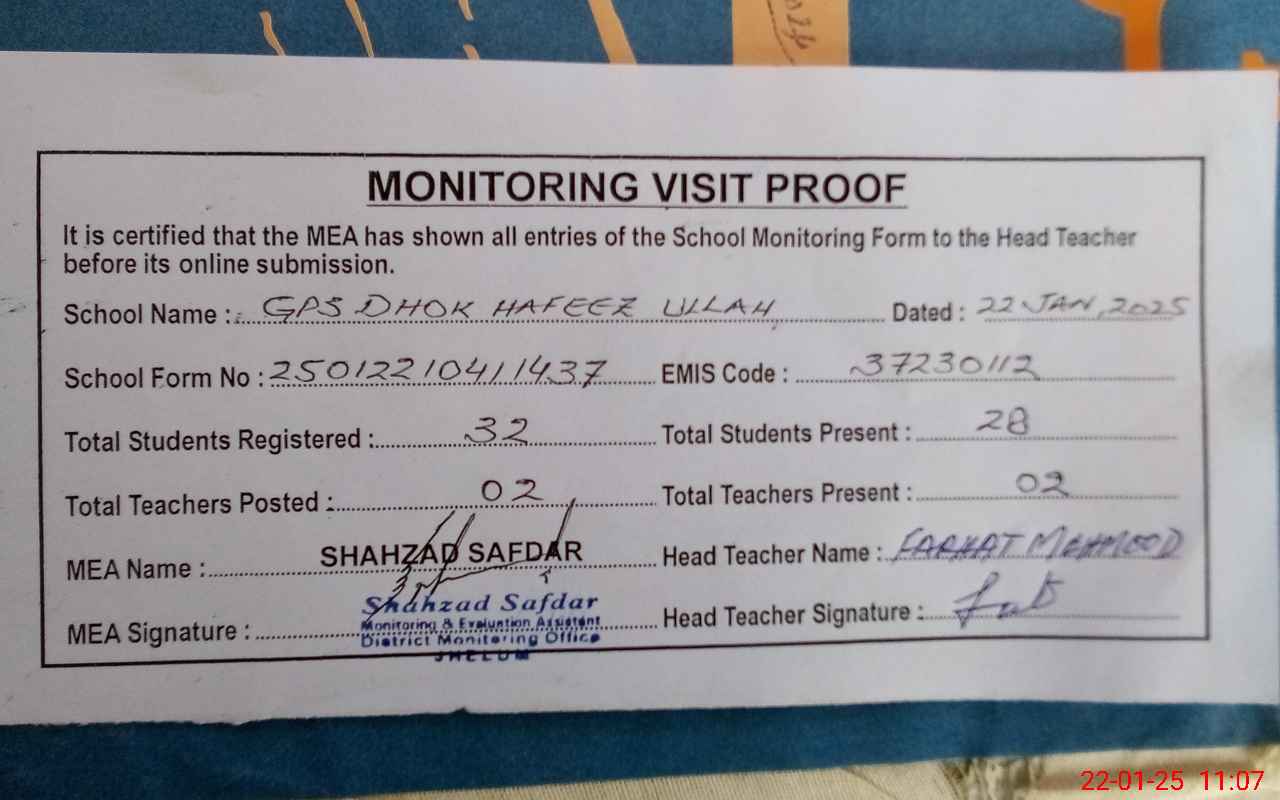 MONITORING VISIT PROOF
It is certified that the MEA has shown all entries of the School Monitoring Form to the Head Teacher
before its online submission.
School Name : GPS DHOK HAFEEZ ULLAH Dated : 22 JAN, 2025
School Form No : 25012210411437 EMIS Code : 37230112
Total Students Registered : 32 Total Students Present : 28
Total Teachers Posted : 02 Total Teachers Present : 02
MEA Name : SHAHZAD SAFDAR Head Teacher Name : FARHAT MEHMOOD
Shahzad Safdar
Monitoring & Evaluation Assistant
MEA Signature : Head Teacher Signature :
District Monitoring Office
JHELUM
22-01-25 11:07